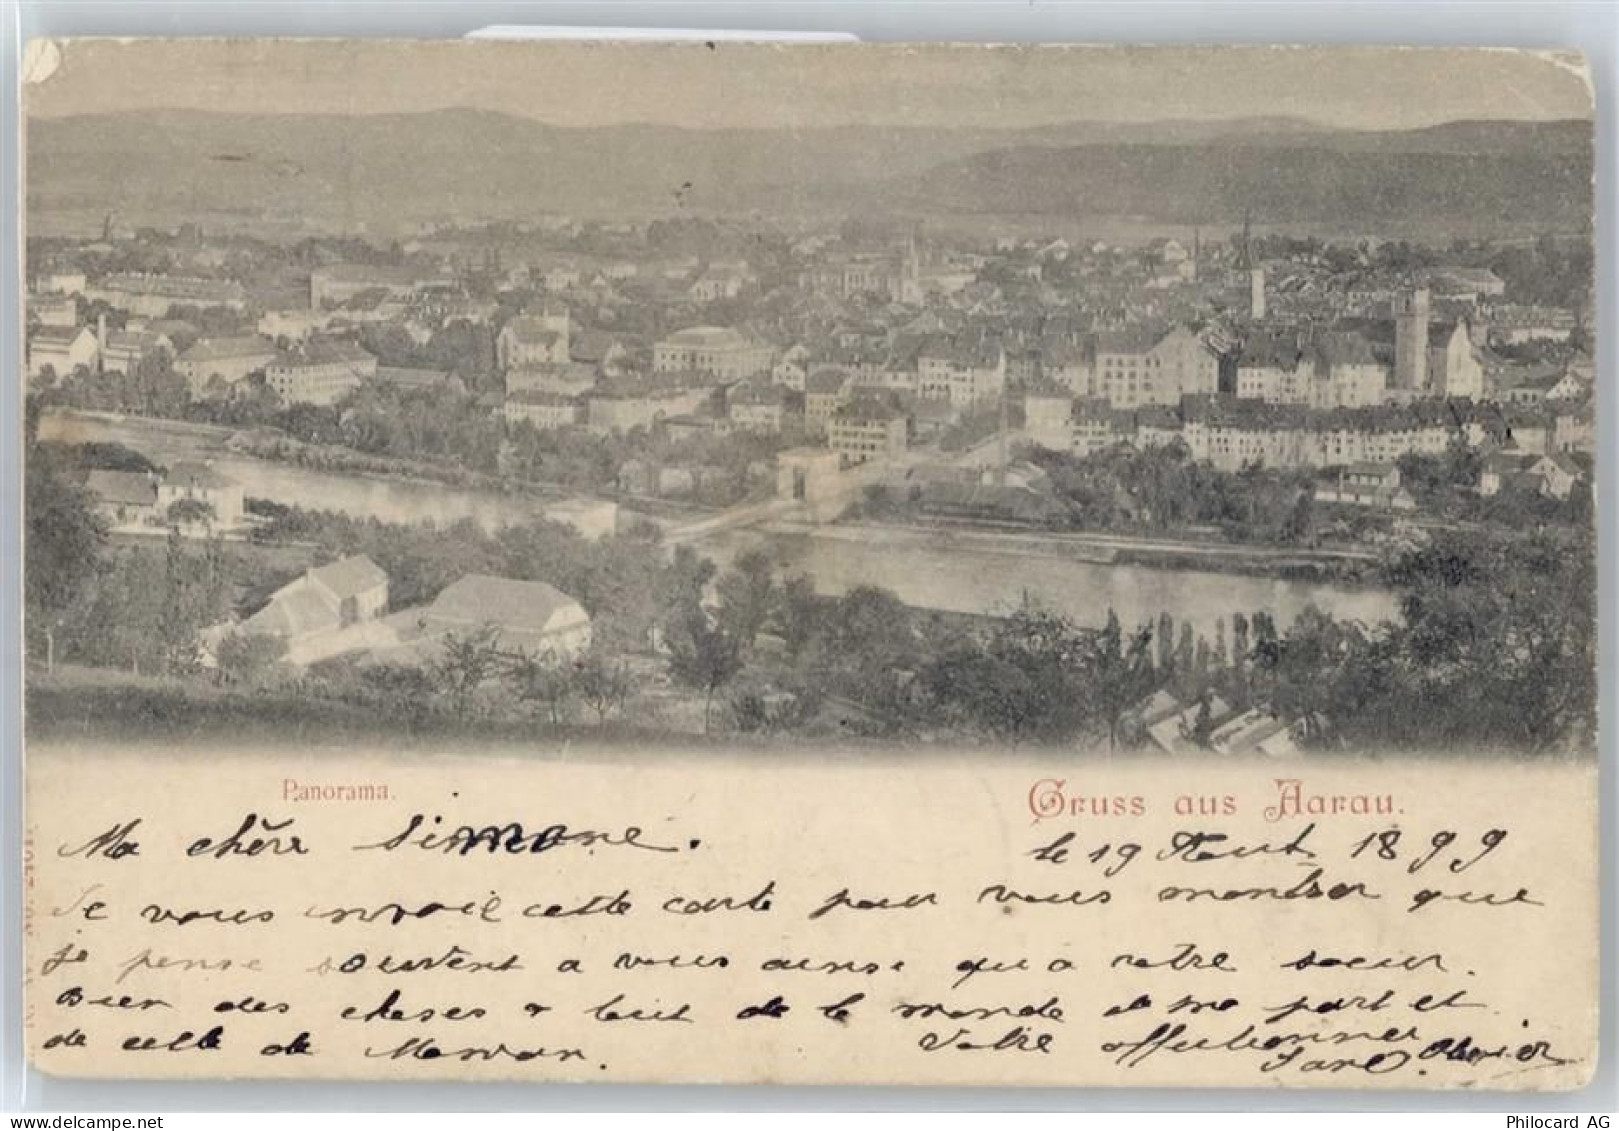 Panorama.
Gruss aus Aarau.
Ma chère Simone.
le 19 Aout 1899
Je vous envoie cette carte pour vous montrer que
je pense souvent a vous ainsi qu a votre soeur.
Bien des choses a tout de le monde de ma part et
de celle de
Votre affectionnée